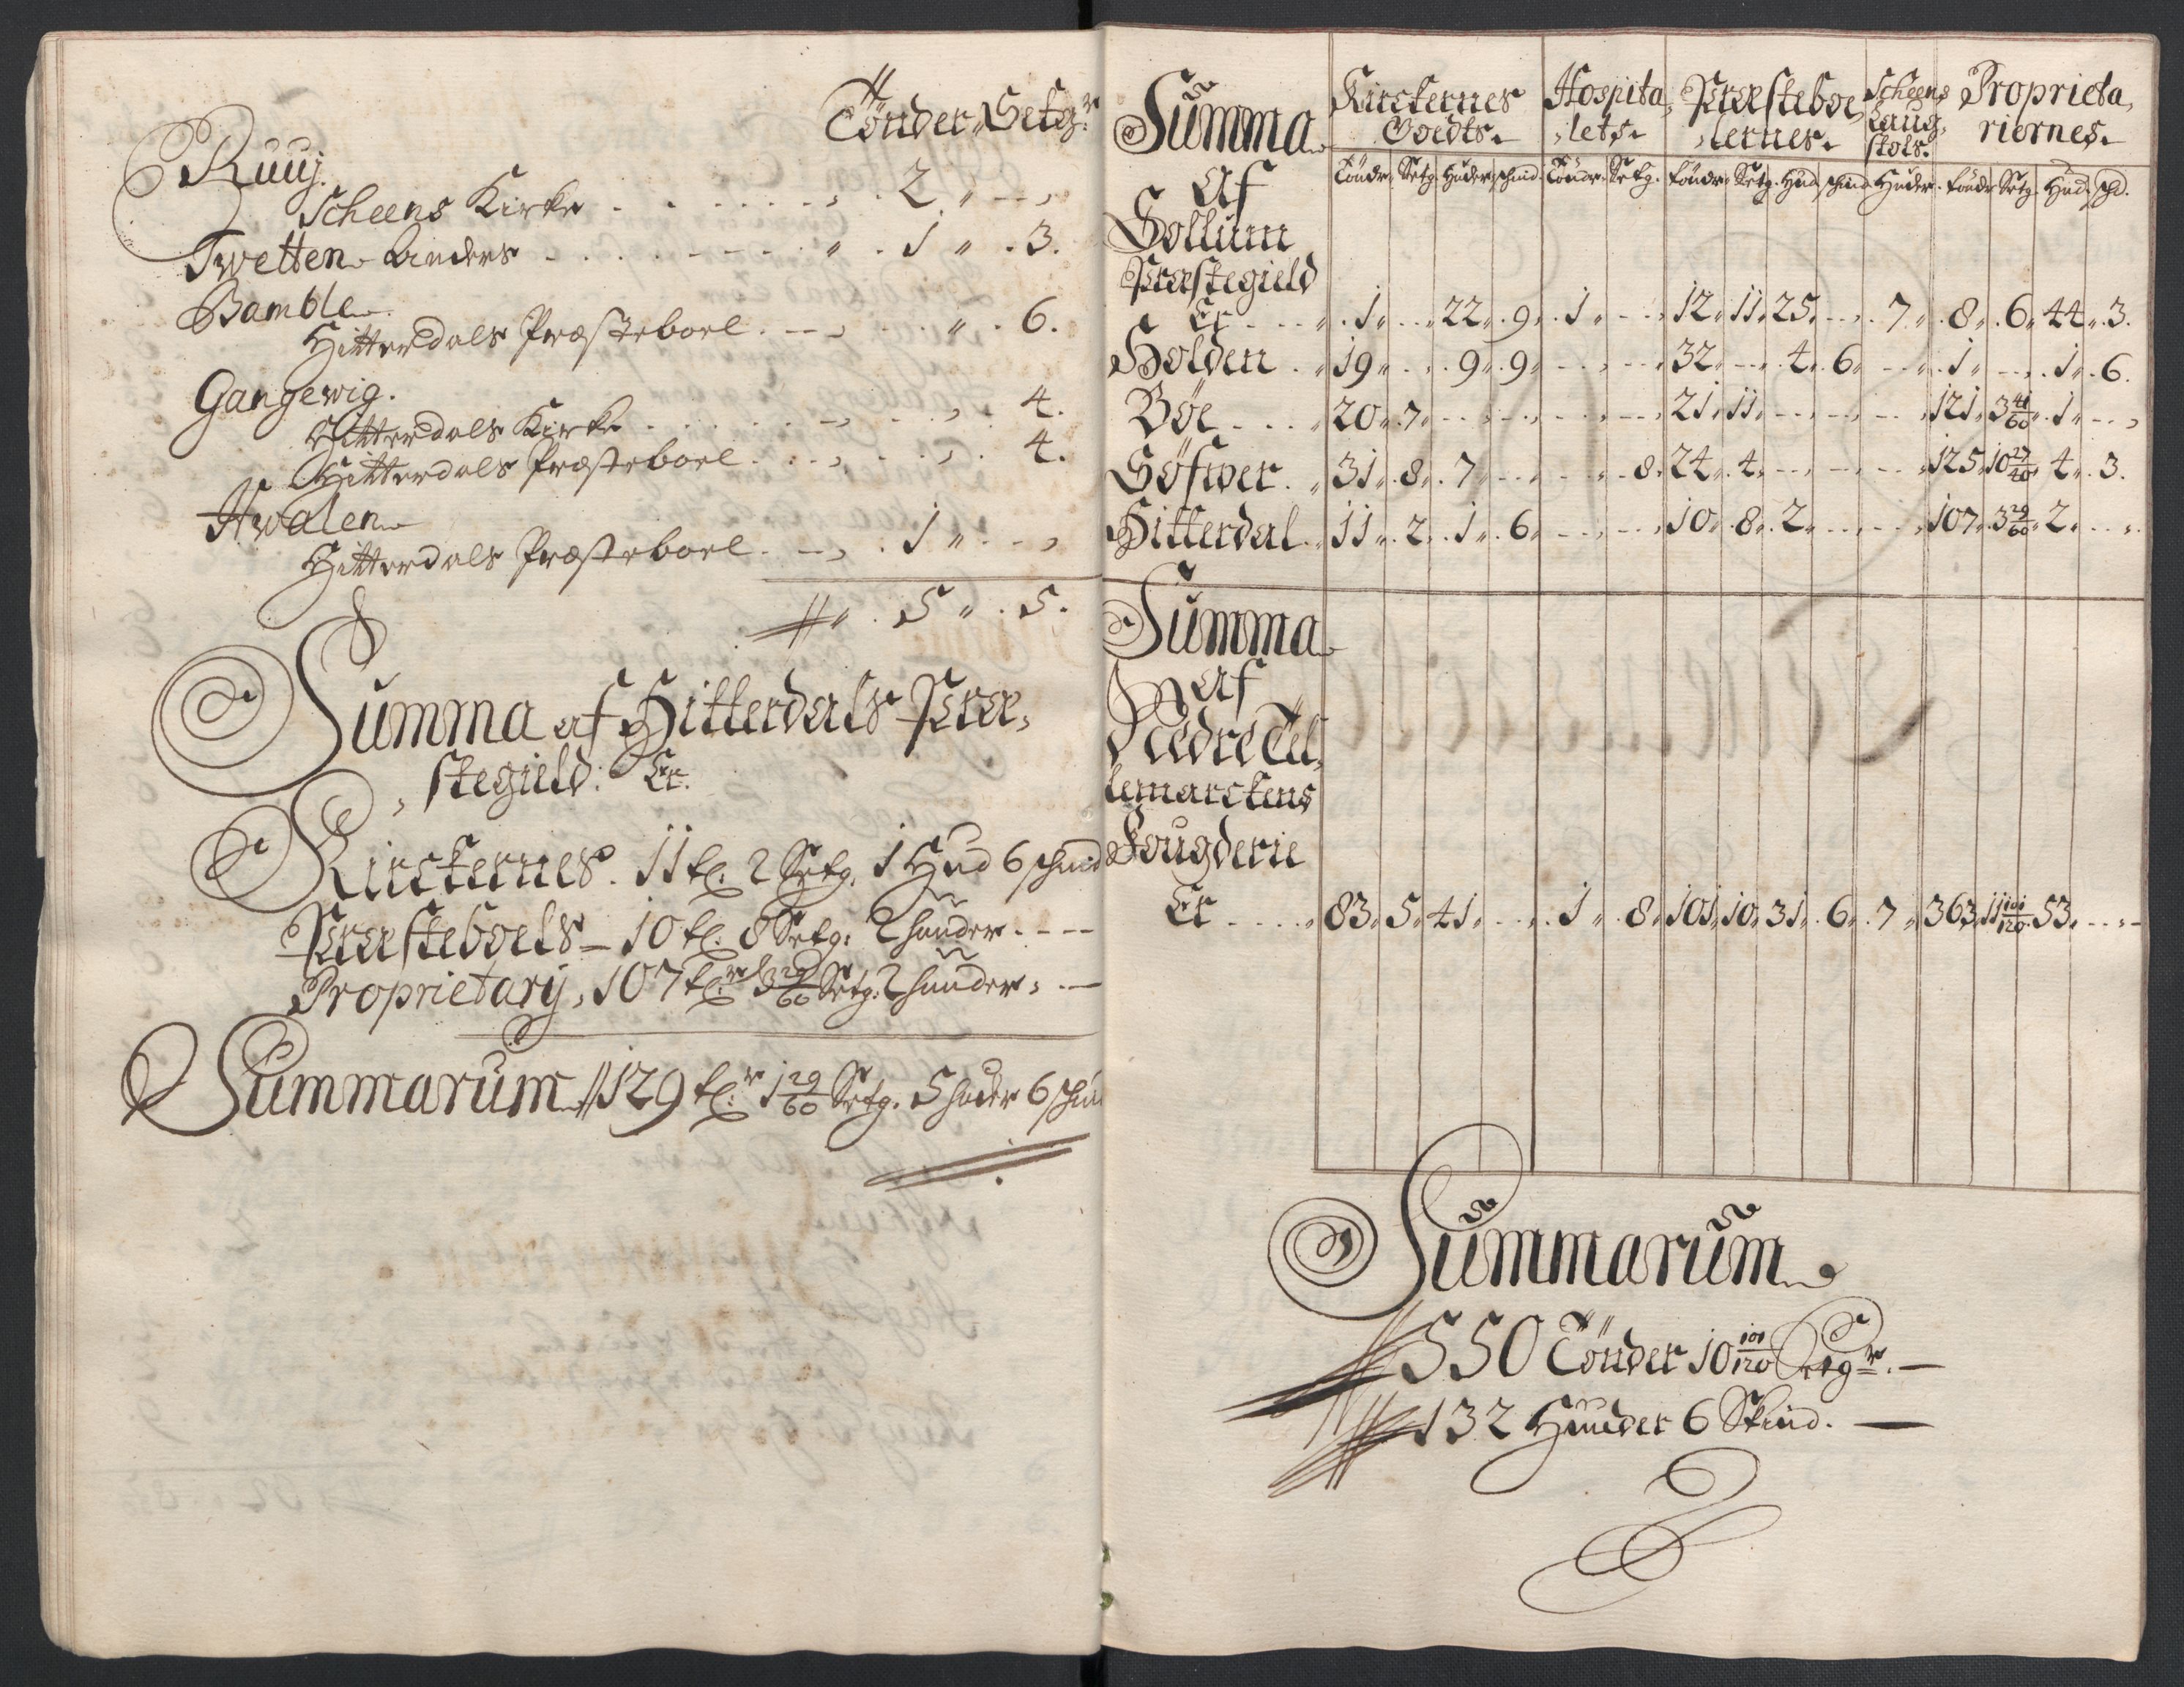 Tönder Setgr
Ruuj.
Scheens Kirke . . . . . . 2 " — "
Twetten Bender . . . . . " . 1 " . 3.
Bamble.
Hitterdals Præsteboel . — " . . " . 6.
Gangewig.
Hitterdals Kirke . . . . . — " . . " . 4.
Hitterdals Præsteboel . . . " . . " . 4.
Hwalen
Hitterdals Præsteboel . — " . 1 " . — "
" . 5 " . 5.
Summa af Hitterdals Præ,
,stegield: Er.
Kirckernes . 11 tl. 2 Setg. 1 Hud 6 schind
Præsteboels — 10 tl. 8 Setg: 2 huuder . — —
Proprietarij, 107 tl:r 3 29/60 Setg: 2 huuder, . —
Summarum // 129 tl:r 1 29/60 Setg. 5 huder 6 schin
Summa Kirckernes Hospita, Præsteboe, Scheens Proprieta,
Goedts. ,lets. ,lernes. Laug, riernes.
stols.
Töndr. Setg. Huder schind. Töndr. Setg. Töndr. Setg. Hud schind Huder. Töndr Setg. Hud. schd.
Af
Sollum
Præstegield
Er . . . " . 1 " . . " 22 " . 9 " . 1 " . — " 12 " 11 " 25 " . — " . 7 " . 8 " . 6 " 44 " . 3.
Holden . " 19 " . . . 9 " . 9 " — . . — " 32 " — " . 4 " . 6 " — " . 1 " — " . 1 " . 6.
Böe . . . " 20 " . 7 " — . . — " 21 " 11 " — . . — " 121 " 3 41/60 " . 1 " — "
Söfwer . " 31 " . 8 " . 7 " — . . — 8 " 24 " . 4 " — . . — " 125 " 10 27/40 " . 4 " . 3.
Hitterdal " 11 " . 2 " . 1 " . 6 " — . . — " 10 " . 8 " . 2 " — . — " 107 " 3 29/60 " 2 " . . "
Summa
Af
Nedre Tel,
lemarckens
Fougderie
Er . . . . " 83 " . 5 " 41 " . . " . 1 " . 8 " 101 " 10 " 31 " . 6 " . 7 " 363 " 11 101/120 " 53 " . . —
Summarum
550 Tönder 10 101/120 Setgr. —
132 Huuder 6 Skind. —